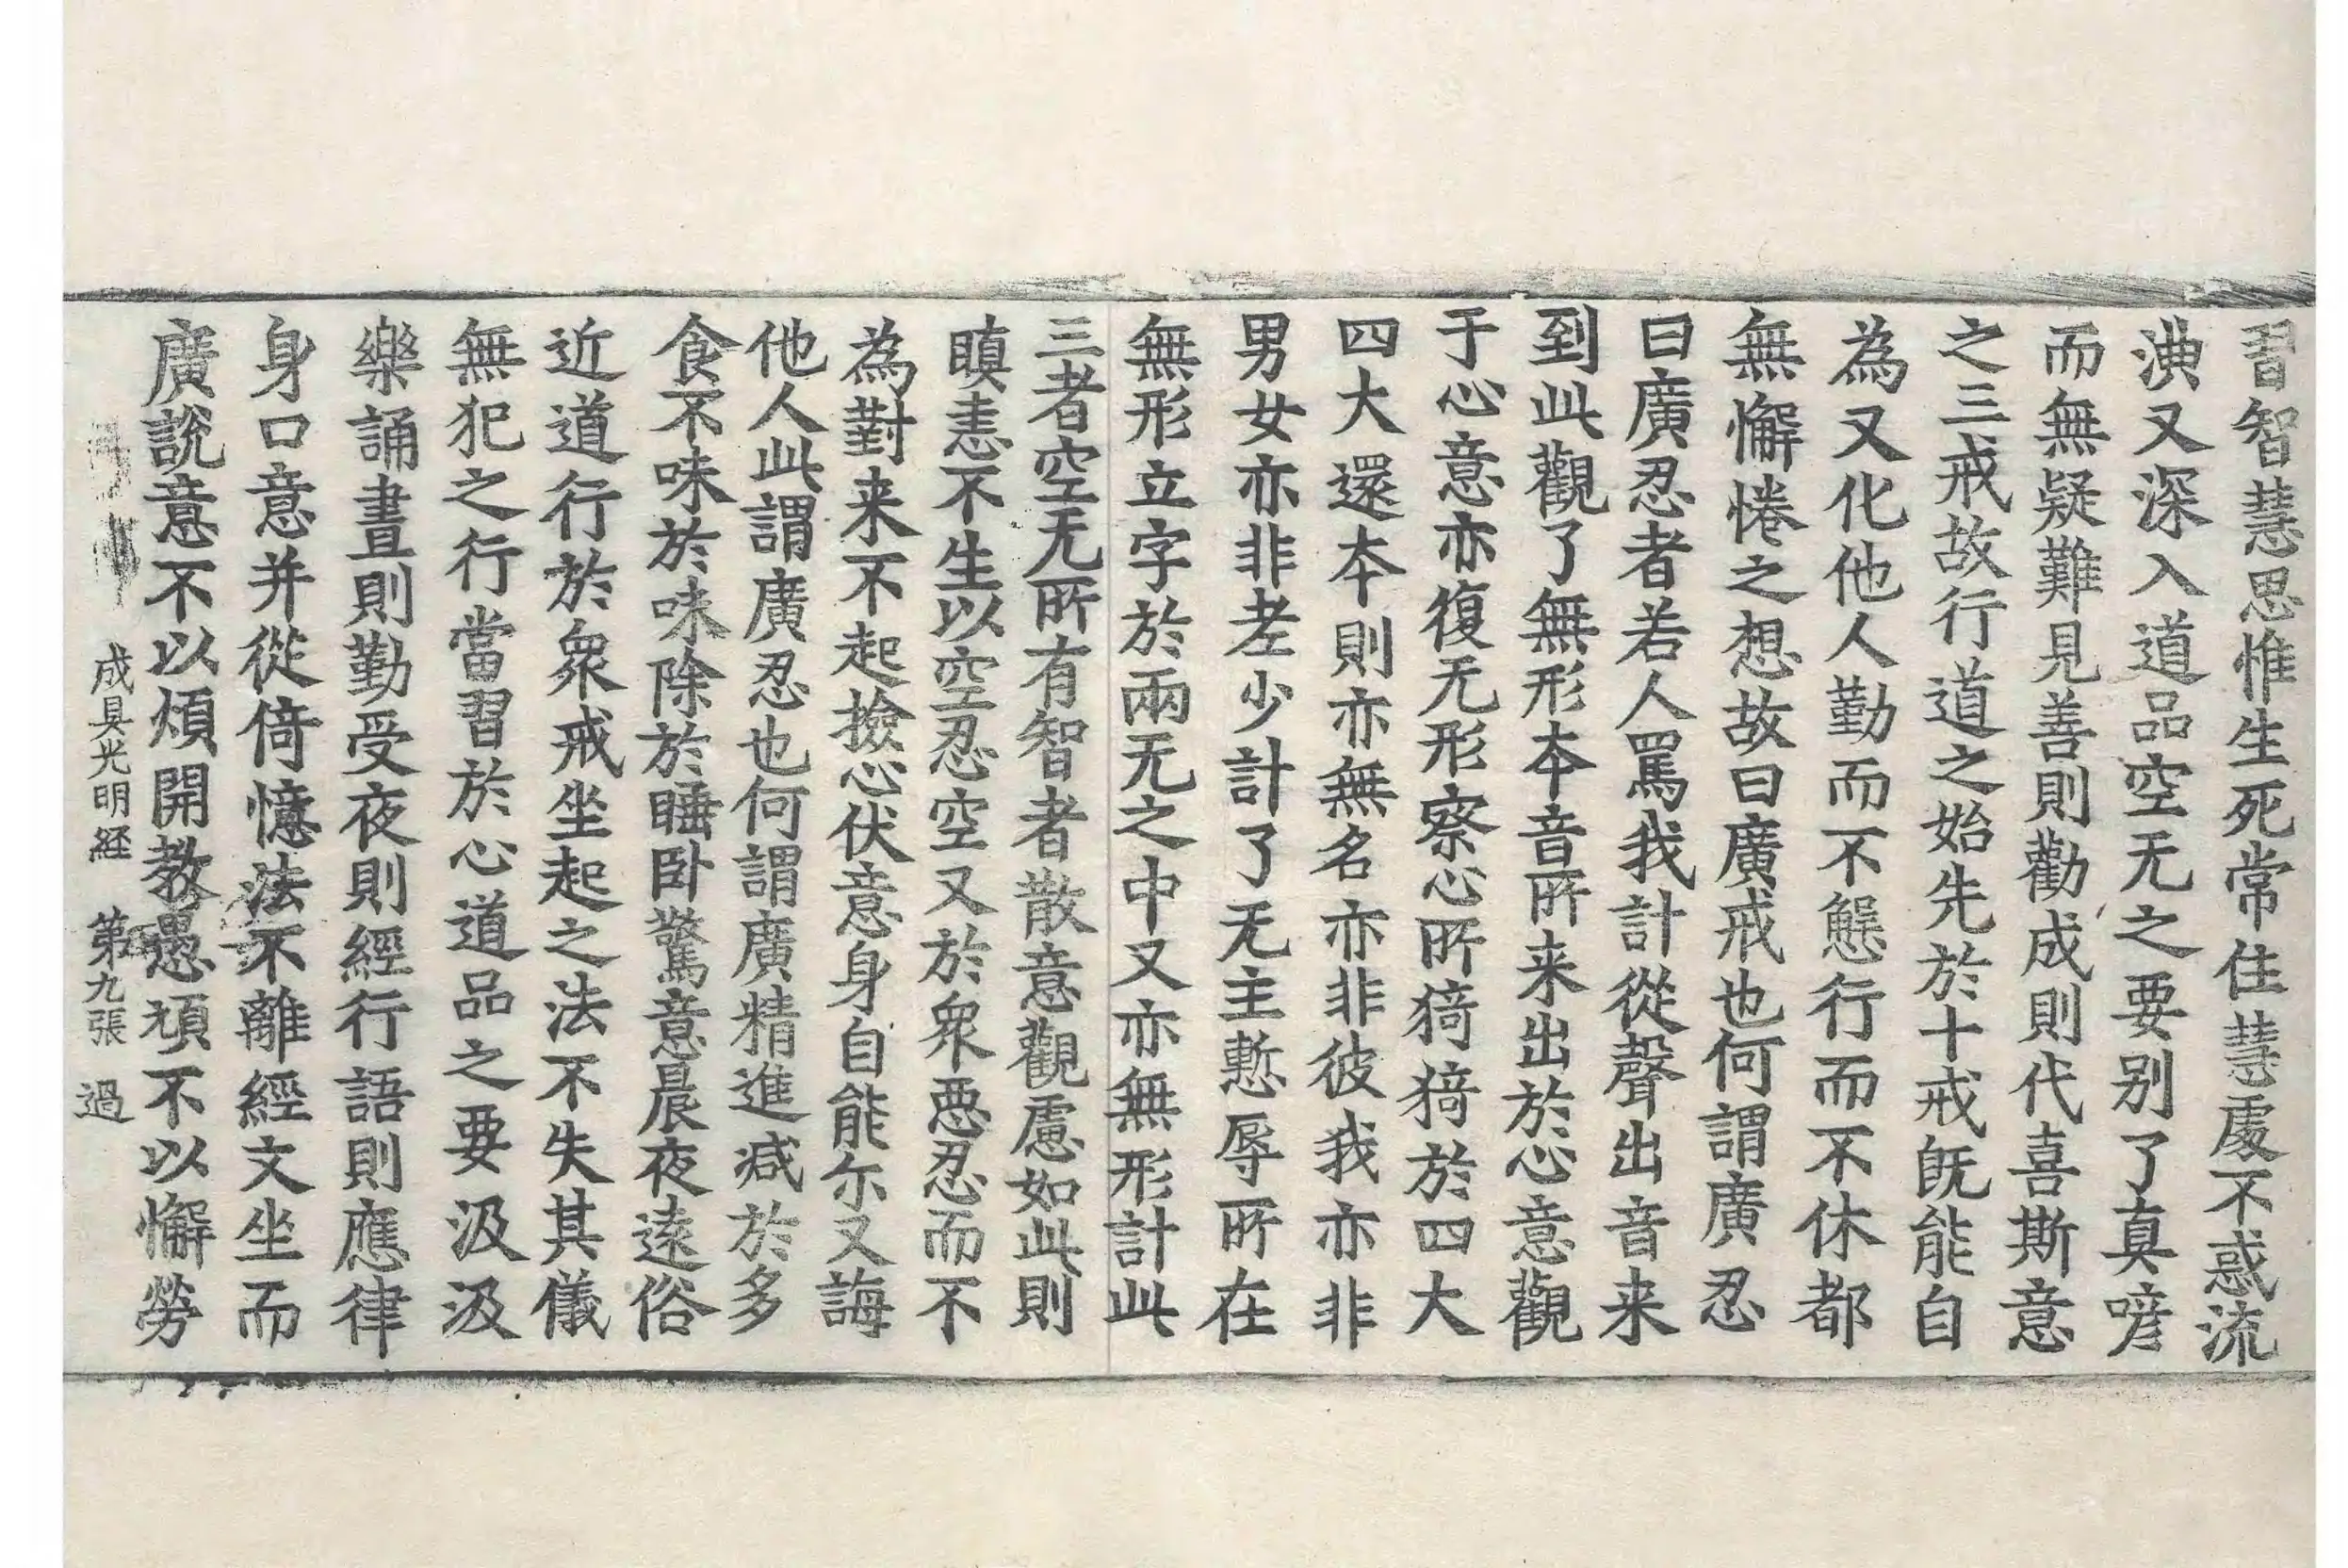 習智慧思惟生死常住慧處不惑流
㳛又深入道品空无之要别了真喭
而無疑難見善則勸成則代喜斯意
之三戒故行道之始先於十戒旣能自
為又化他人勤而不態行而不休都
無懈惓之想故曰廣戒也何謂廣忍
曰廣忍者若人罵我計從聲出音来
到此觀了無形本音所来出於心意觀
于心意亦復无形察心所猗猗於四大
四大還本則亦無名亦非彼我亦非
男女亦非老少計了无主慙辱所在
無形立字於兩无之中又亦無形計此
三者空无所有智者散意觀慮如此則
瞋恚不生以空忍空又於衆惡忍而不
為對来不起撿心伏意身自能尓又誨
他人此謂廣忍也何謂廣精進减於多
食不味於味除於睡卧驚意晨夜遠俗
近道行於衆戒坐起之法不失其儀
無犯之行當習於心道品之要汲汲
樂誦晝則勤受夜則經行語則應律
身口意并從倚憶法不離經文坐而
廣說意不以煩開教愚頑不以懈勞
成具光明経 第九張 過